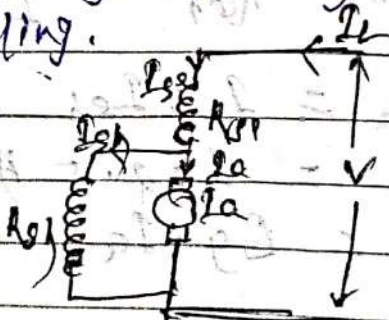 ling.
IL
Ise
Rse
Ish
Ia
V
Ia
Rsh